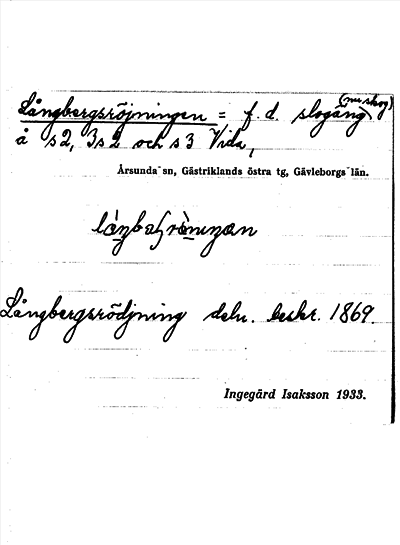 Långbergsröjningen = f. d. slogång (nu skog)
å s2, 3s2 och s3 Vida,
Årsunda sn, Gästriklands östra tg, Gävleborgs län.
Långbergsrödjning deln. beskr. 1869.
Ingegärd Isaksson 1933.